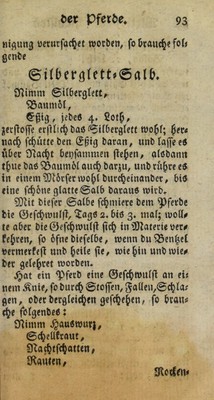 der Pferde. 93
nigung verursachet worden, so brauche fol⸗
gende
Silberglett⸗Salb.
Nimm Silberglett,
Baumöl,
Eßig, jedes 4. Loth,
zerstosse erstlich das Silberglett wohl; her⸗
nach schütte den Eßig daran, und lasse es
über Nacht beysammen stehen, alsdann
thue das Baumöl auch darzu, und rühre es
in einem Mörser wohl durcheinander, bis
eine schöne glatte Salb daraus wird.
Mit dieser Salbe schmiere dem Pferde
die Geschwulst, Tags 2. bis 3. mal; woll⸗
te aber die Geschwulst sich in Materie ver⸗
kehren, so öfne dieselbe, wenn du Bentzel
vermerkest und heile sie, wie hin und wie⸗
der gelehret worden.
Hat ein Pferd eine Geschwulst an ei⸗
nem Knie, so durch Stossen, Fallen, Schla⸗
gen, oder dergleichen geschehen, so brau⸗
che folgendes:
Nimm Hauswurz,
Schellkraut,
Nachtschatten,
Rauten,
Rocken⸗